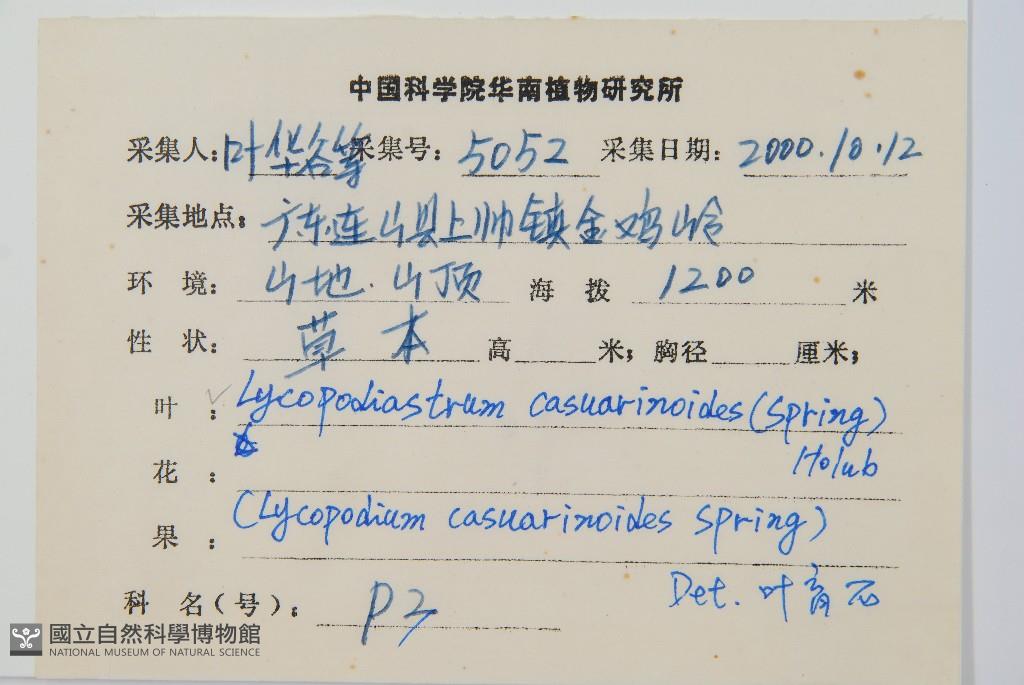 中国科学院华南植物研究所
采集人:叶华谷等采集号: 5052 采集日期: 2000.10.12
采集地点: 广东连山县上帅镇金鸡岭
环 境: 山地.山顶 海 拨 1200 米
性 状: 草本 高 米; 胸径 厘米;
叶 : Lycopodiastrum casuarinoides (Spring)
花 : Holub
果 : (Lycopodium casuarinoides Spring)
科 名(号): P3 Det. 叶育石
國立自然科學博物館
NATIONAL MUSEUM OF NATURAL SCIENCE